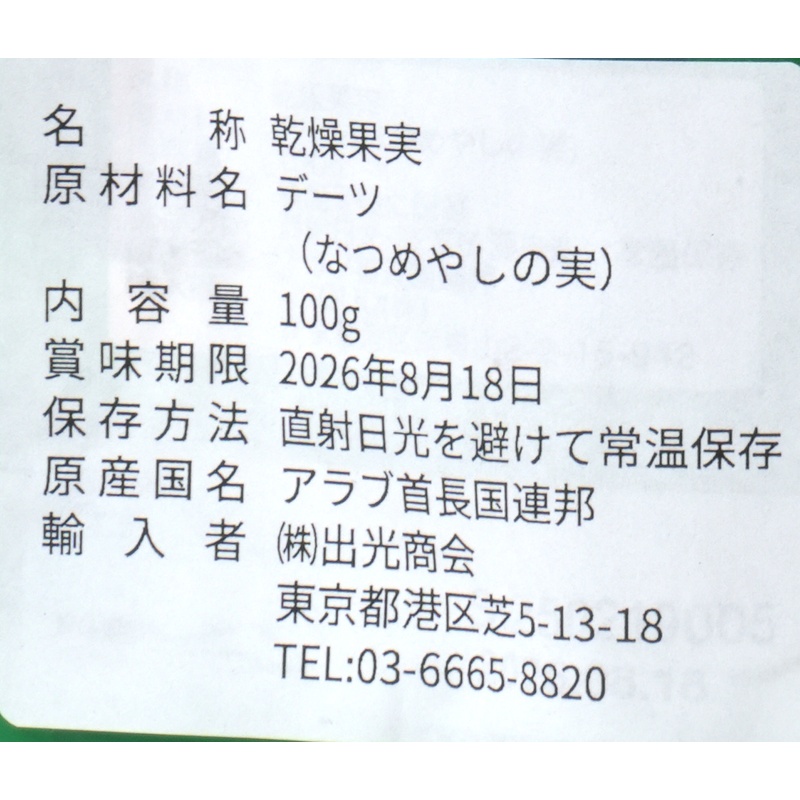 名称 乾燥果実
原材料名 デーツ
（なつめやしの実）
内容量 100g
賞味期限 2026年8月18日
保存方法 直射日光を避けて常温保存
原産国名 アラブ首長国連邦
輸入者 ㈱出光商会
東京都港区芝5-13-18
TEL:03-6665-8820